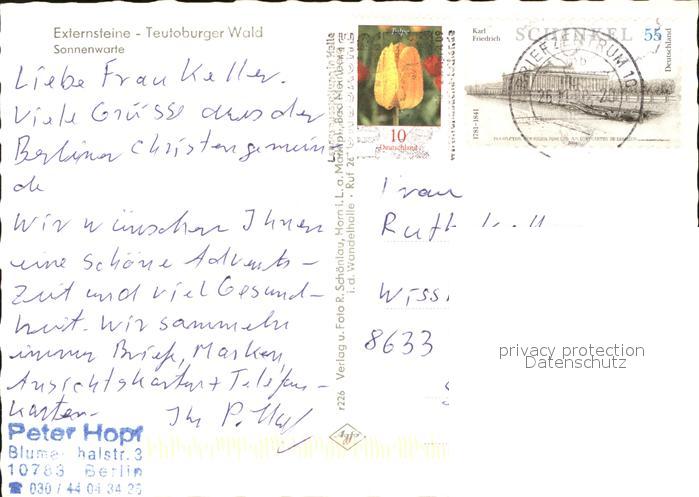 Externsteine - Teutoburger Wald
Sonnenwarte
Liebe Frau Keller.
Viele Grüsse aus der
Berliner Christengemein
de
Wir wünschen Ihnen
eine schöne Advents-
Zeit und viel Gesund-
heit. Wir sammeln
immer Briefe, Marken,
Ansichtskarten + Telefon-
karten.
Ihr P. Hopf
Peter Hopf
halstr. 3
10783 Berlin
☎ 030 / 44 04 34 26
r226 Verlag u. Foto R. Schönlau, Horn i. L. a. Markt
i. d. Wandelhalle · Ruf 26
Tulpe
10
Deutschland
Karl
Friedrich
SCHINKEL
55
Deutschland
1781-1841
BRIEFZENTRUM 10
Frau
Ruth
Wiss
8633
privacy protection
Datenschutz